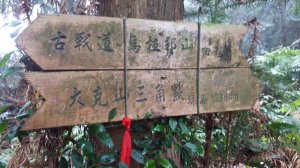 古戰道 烏拉邦山
大克山三角點